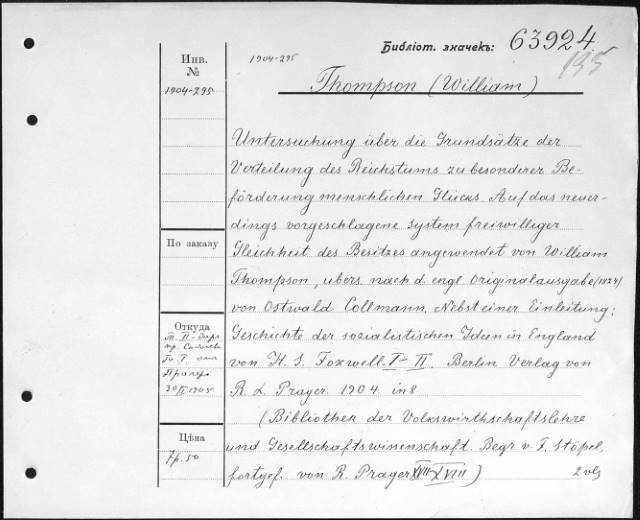 Библіот. значекъ: 63924
195
Инв.
№
1904-295
1904-295
Thompson (William)
Untersuchung über die Grundsätze der
Verteilung des Reichstums zu besonderer Be-
förderung menschlichen Glücks. Auf das neuer-
dings vorgeschlagene System freiwilliger
Gleichheit des Besitzes angewendet von William
Thompson, übers. nach d. engl. Originalausgabe (1824)
von Ostwald Collmann. Nebst einer Einleitung:
Geschichte der sozialistischen Ideen in England
von H. S. Foxwell. I-II. Berlin Verlag von
R. L. Prager. 1904. in 8
(Bibliothek der Volkswirthschaftslehre
und Gesellschaftswissenschaft. Begr. v. F. Stöpel,
fortgef. von R. Prager XVII-XVIII)
2 vls
По заказу
Откуда
Прагер
30/IX 1905
Цѣна
7р.50